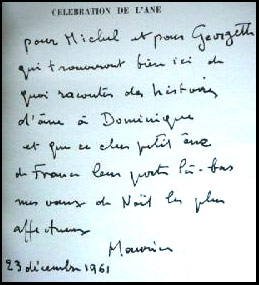 CELEBRATION DE L'ANE
pour Michel et pour Georgette
qui trouveront bien ici de
quoi raconter des histoires
d'âne à Dominique
et que ce cher petit âne
de France leur porte là-bas
mes vœux de Noël les plus
affectueux
Maurice
23 décembre 1961